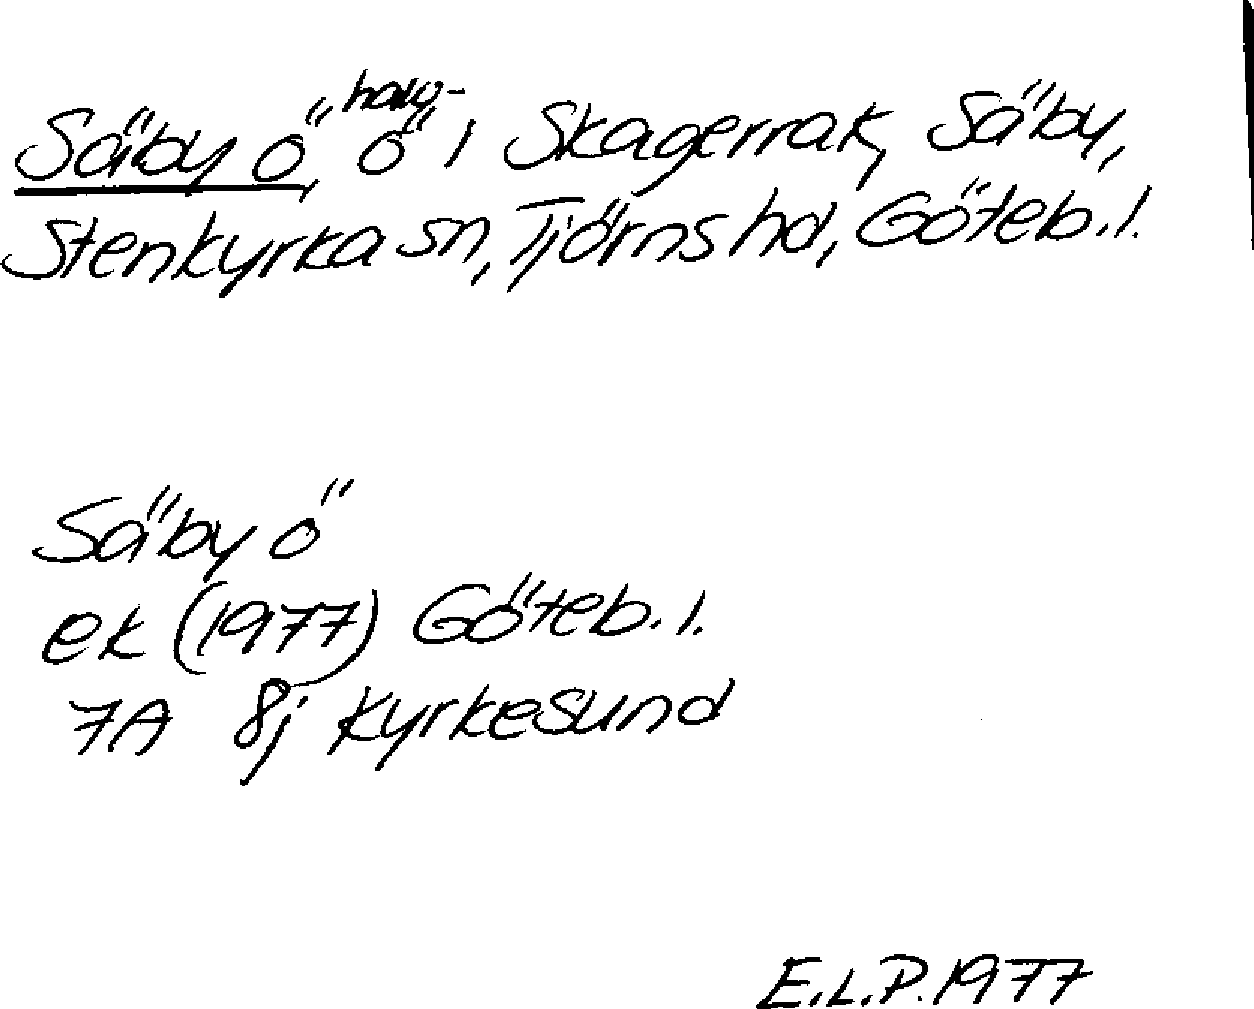 Säby ö, halvö i Skagerrak, Säby,
Stenkyrka sn, Tjörns hd, Göteb. l.
Säby ö
ek (1977) Göteb. l.
7A 8j Kyrkesund
E.L.P. 1977